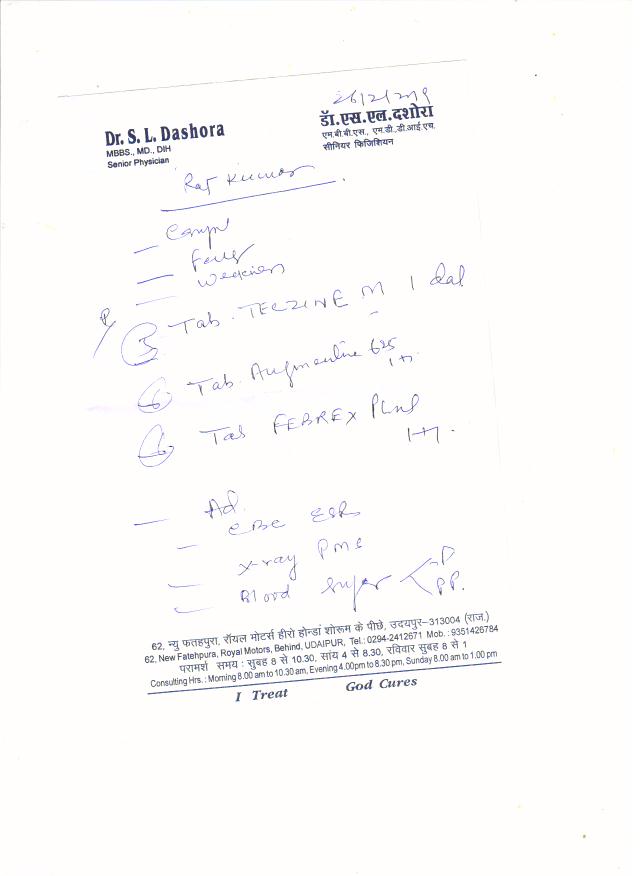 26/2/2019
Dr. S. L. Dashora
MBBS., MD., DIH
Senior Physician
डॉ.एस.एल.दशोरा
एम.बी.बी.एस., एम.डी.,डी.आई.एच.
सीनियर फिजिशियन
Raj Kumar
Weakness
Tab. TECZINE M 1 daily
Tab. Augmentine 625
1+1.
Tab FEBREX Plus
1+1.
Ad.
CBC ESR
X-ray PNS
Blood Sugar F PP.
62, न्यु फतहपुरा, रॉयल मोटर्स हीरो होन्डां शोरूम के पीछे, उदयपुर–313004 (राज.)
62, New Fatehpura, Royal Motors, Behind, UDAIPUR, Tel.: 0294-2412671 Mob. : 9351426784
परामर्श समय : सुबह 8 से 10.30, सांय 4 से 8.30, रविवार सुबह 8 से 1
Consulting Hrs. : Morning 8.00 am to 10.30 am, Evening 4.00pm to 8.30 pm, Sunday 8.00 am to 1.00 pm
I Treat God Cures